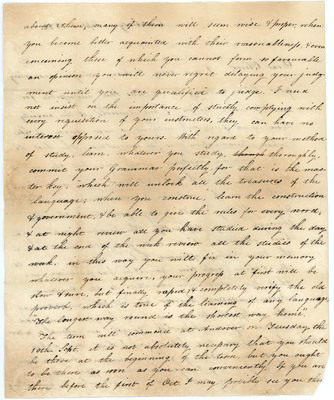 about them, many of them will seem wise & proper, when
you become better acquainted with their reasonableness. & even
concerning those of which you cannot form so favourable
an opinion you will never regret delaying your judg-
ment until you are qualified to judge. I need
not insist on the importance of strictly complying with
every requisition of your instructors, they can have no
interest opposed to yours. With regard to your method
of study. Learn, whatever you study, thoroughly,
commit your Grammar perfectly for that is the mas-
ter key, which will unlock all the treasures of the
language; when you construe, learn the construction
& government, & be able to give the rules for every word,
& at night review all you have studied during the day,
& at the end of the week review all the studies of the
week. in this way you will fix in your memory
whatever you acquire, your progress at first will be
slow & sure, but finally rapid, & completely verify the old
proverb which is true of the learning of any language
"The longest way round is the shortest way home".
The term will commence at Andover on Tuesday the
10th Sept. it is not absolutely necessary that you should
be there at the beginning of the term but you ought
to be there as soon as you can conveniently. If you are
there before the first of Oct I may possibly see you this